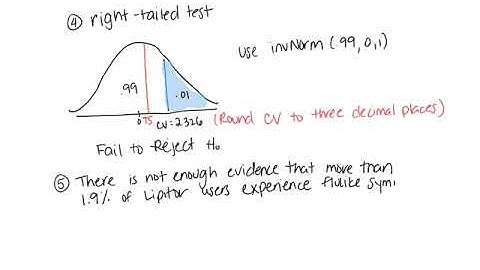 ④ right-tailed test
use invNorm (.99, 0, 1)
.99
.01
0 TS CV=2.326 (Round CV to three decimal places)
Fail to Reject H₀
⑤ There is not enough evidence that more than
1.9% of Lipitor users experience flulike sym